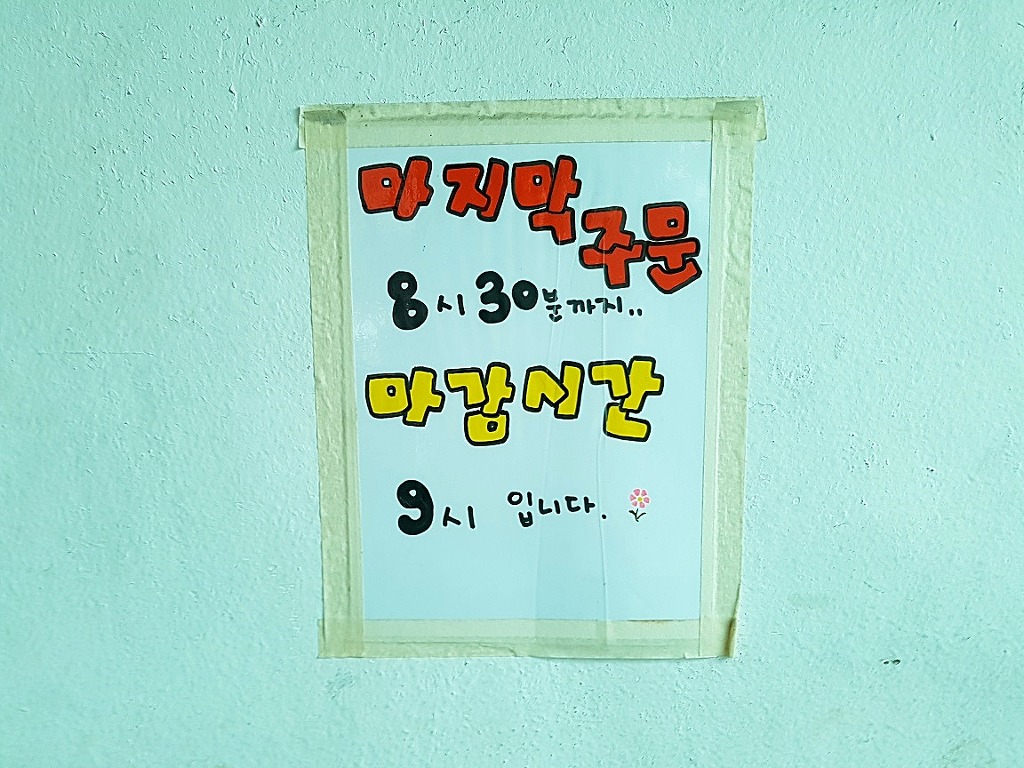 마지막 주문
8시 30분까지..
마감시간
9시 입니다.